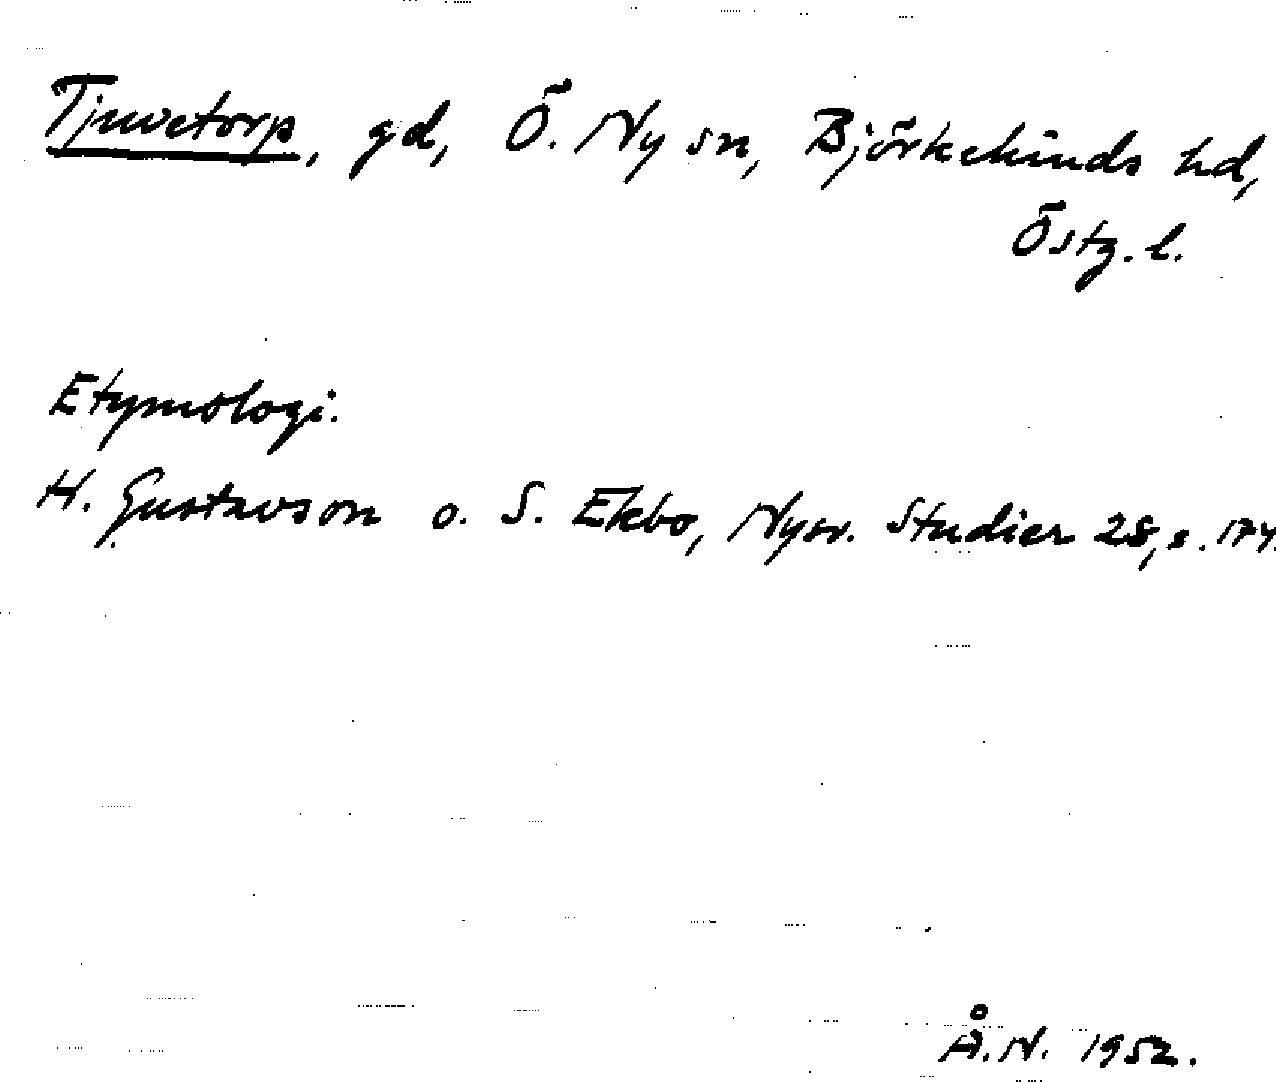 Tjuvetorp, gd, Ö. Ny sn, Björkekinds hd,
Östg. l.
Etymologi.
H. Gustavson o. S. Ekbo, Nysv. Studier 28, s. 174.
Å.N. 1952.